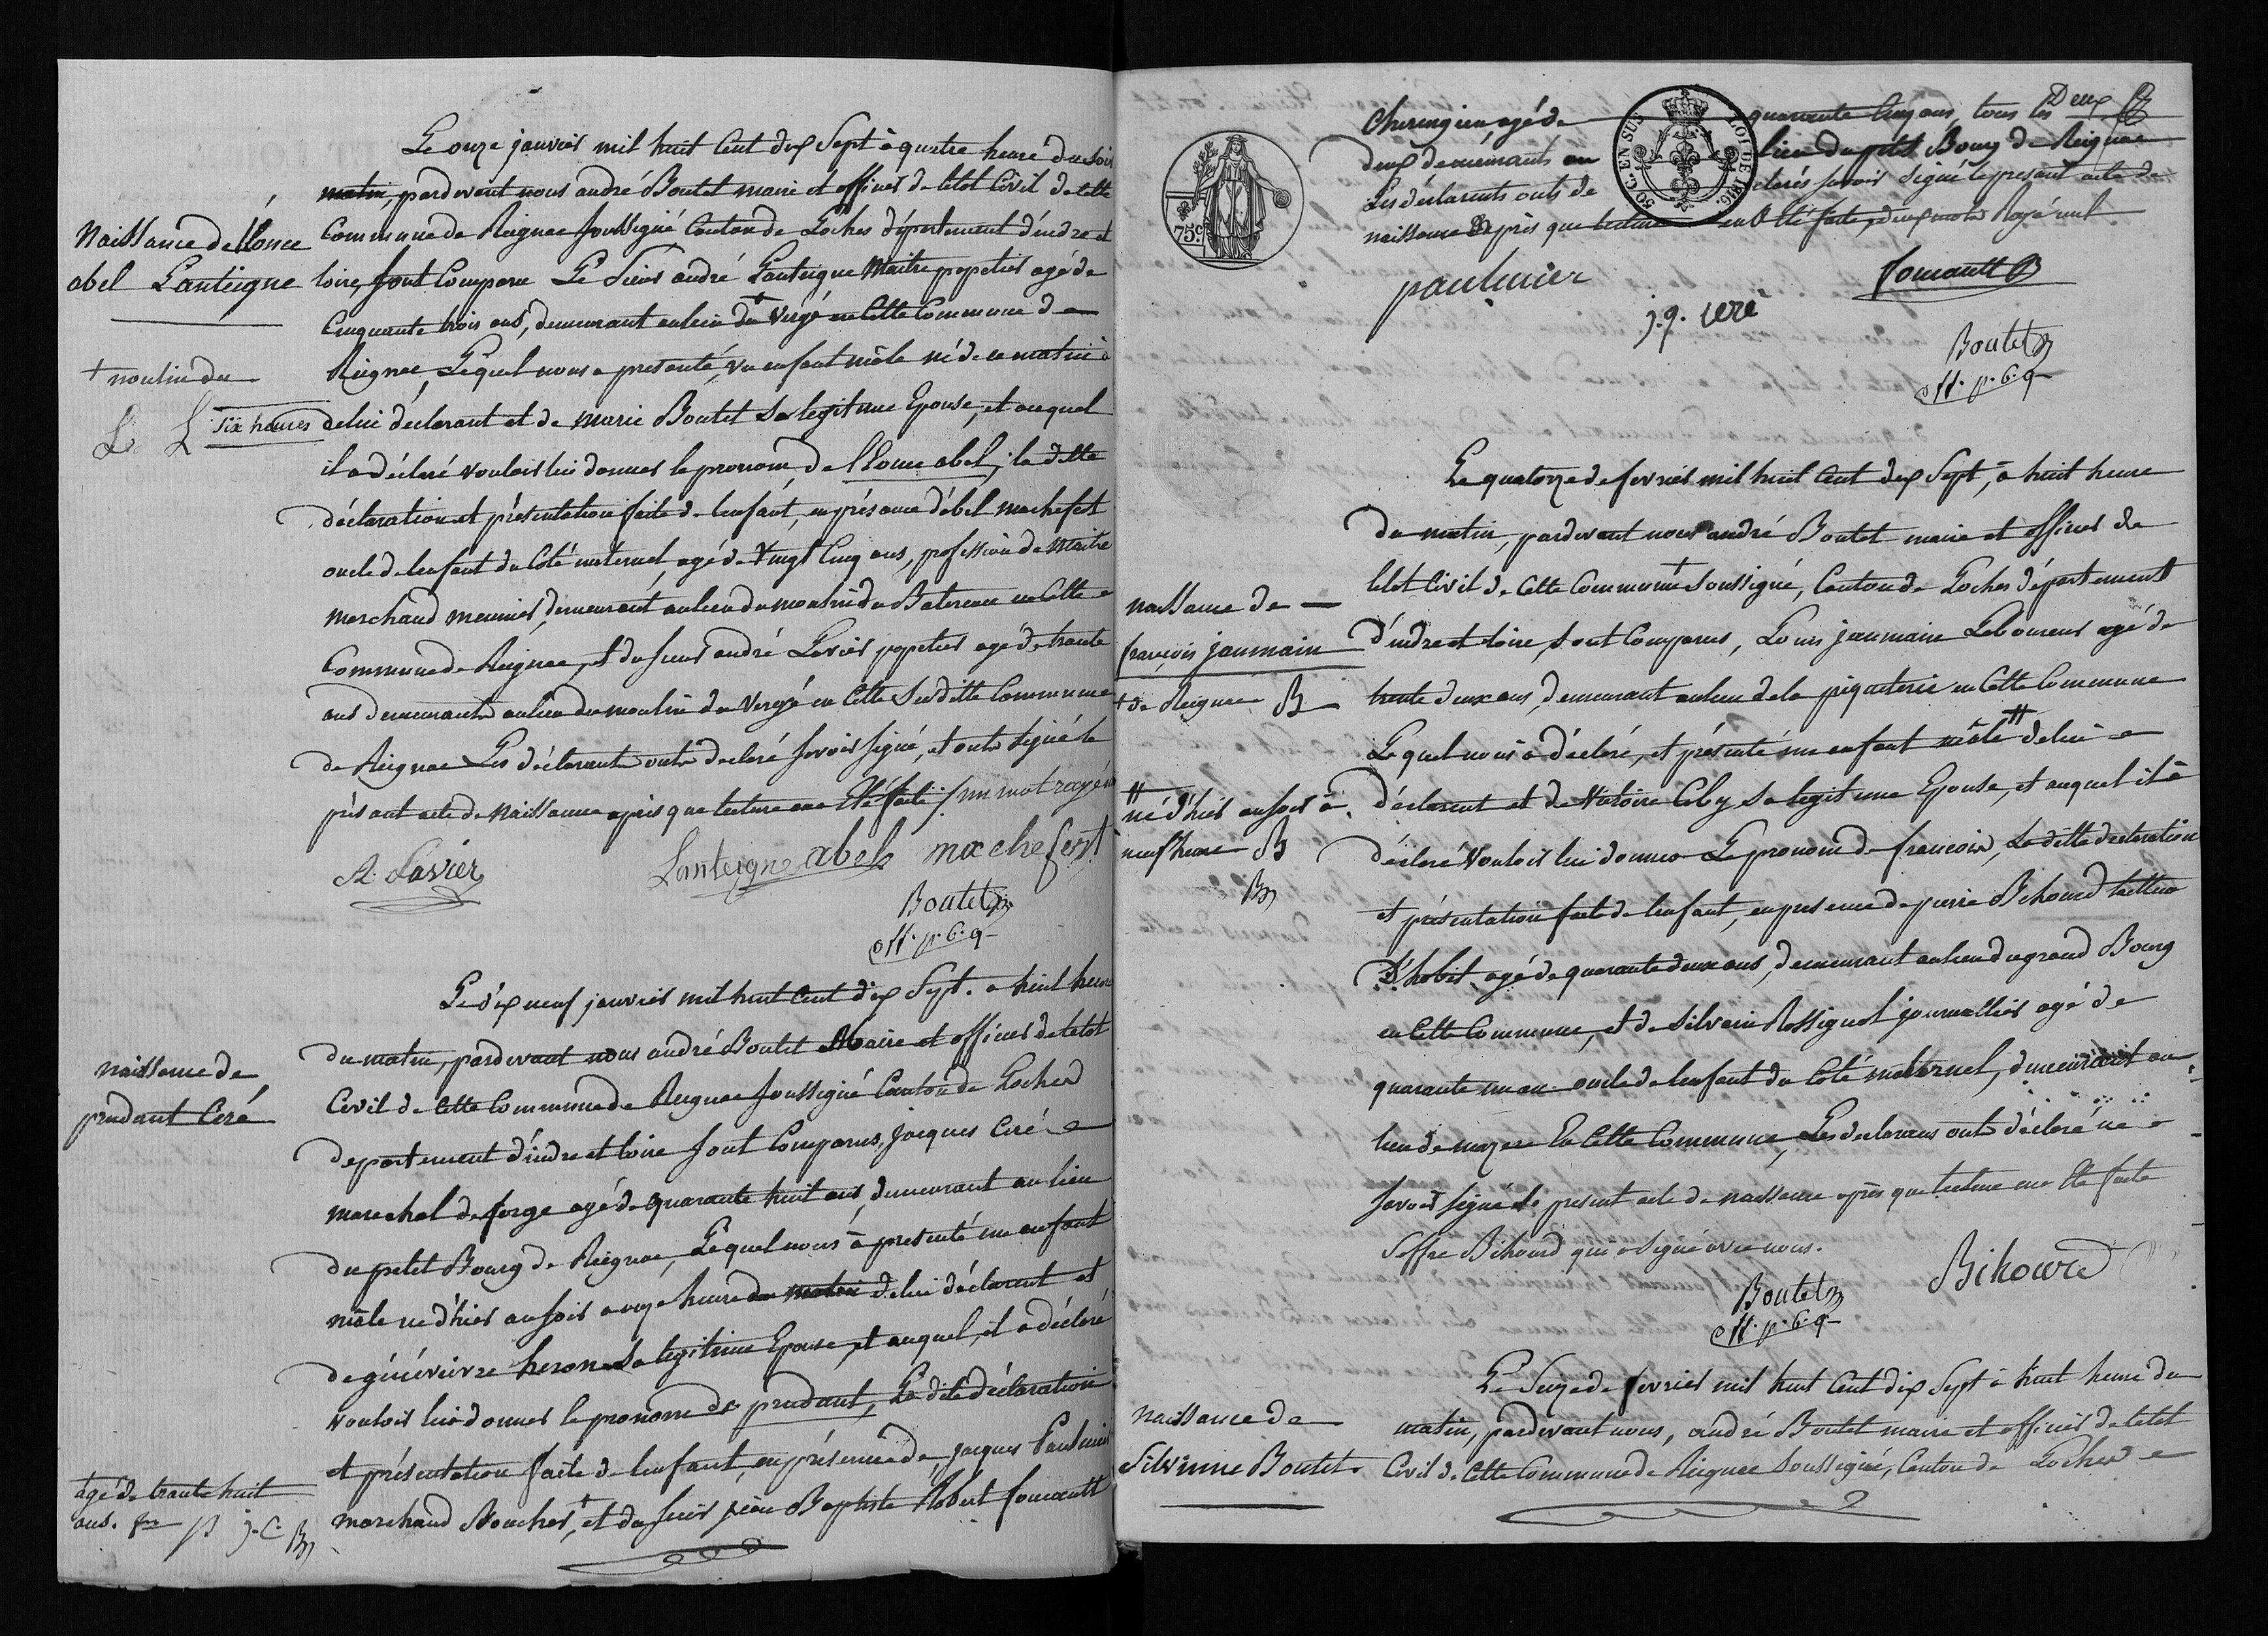 Le onze janvier mil huit Cent dix Sept à quatre heure du Soir
matin, pardevant nous andré Boutet maire et officier de letat Civil de cette
Naissance de
abel Lanteigne
Commune de Reignac Soussigné Canton de Loches département d'indre et
loire, sont Comparu Le Sieur andré Lanteigne Maitre papetier agé de
Cinquante trois ans, demeurant au lieu du + Vergé en Cette Commune de
+ moulin du
Reignac, Lequel nous a presenté, un enfant mâle né de ce matin à
six heures
de lui déclarant et de Marie Boutet Sa legitime Epouse, et auquel
il a déclaré vouloir lui donner le pronom de abel, la ditte
déclaration et présentation faite de lenfant, en présence d'abel machefert
oncle de lenfant du Coté maternel, agé de Vingt Cinq ans, profession de Maitre
marchand meunier, demeurant au lieu du moulin du Batereau en Cette
Commune de Reignac, et du sieur andré Lavier papetier agé de trante
ans demeurants au lieu du moulin du Vergé en Cette Susditte Commune
de Reignac Les déclarants onts declaré savoir signé, et onts signé le
présant acte de Naissance après que lecture en a Eté faite / un mot rayé
A. Lavier
Lanteigne abel machefert
Boutet
Le dix neuf janvier mil huit Cent dix Sept. a huit heure
du matin, pardevant nous andré Boutet Maire et officier de letat
naissance de
prudant Ceré
Civil de Cette Commune de Reignac Soussigné Canton de Loches
département d'indre et loire sont Comparus, jacques Ceré
marechal de forge agé de quarante huit ans, demeurant au lieu
du petit Bourg de Reignac, Lequel nous à presenté un enfant
mâle né d'hier au soir a onze heure du matin de lui déclarant et
de généviévre heron Sa legitime Epouse, et auquel, il a déclaré
vouloir lui donner le pronom de prudant, La dite déclaration
et présentation faite de lenfant, en présence de jacques Paulmier
+ agé de trante huit
ans. j. C.
marchand Boucher, + et du sieur jean Baptiste Robert foucault
75 c
50 C. EN SUS
LOI DE 1816.
Chirurgien agé de quarante Cinq ans, tous les Deux
deux demeurants au lieu du petit Bourg de Reignac
Les déclarants onts déclarés savoir signé le present acte de
naissance Après que lecture en a Eté faite, deux mots Rayé nul.
paulmier
j. q. cere
foucault
Boutet
Le quatorze de fevrier mil huit Cent dix Sept, à huit heure
du matin, pardevant nous andré Boutet maire et officier de
létat Civil de Cette Commune + Soussigné, Canton de Loches département
naissance de
françois jaumain
d'indre et loire, sont Comparus, Louis jaumain Laboureur agé de
+ de Reignac
trente deux ans, demeurant au lieu de la piqueterie en Cette Commune
Lequel nous à déclaré, et présenté un enfant mâle # de lui
# né d'hier au soir à
neuf heure
déclarant et de Victoire Sa legitime Epouse, et auquel il à
déclaré vouloir lui donner Le pronom de francois, La ditte declaration
et présentation faite de lenfant, en presence de pierre Bihourd tailleur
D'habit, agé de quarante deux ans, demeurant au lieu du grand Bourg
en Cette Commune, et de Silvain Rossignol journallier agé de
quarante un an oncle de lenfant du Coté maternel, demeurant au
lieu de en Cette Commune, Les declarans onts déclaré ne
savoir signé le présent acte de naissance après que lecture en a Eté faite
Boutet
Bihourd
Le Seize de fevrier mil huit Cent dix Sept à huit heure du
matin, pardevant nous, andré Boutet maire et officier de letat
naissance de
Silvinne Boutet.
Civil de Cette Commune de Reignac Soussigné, Canton de Loches